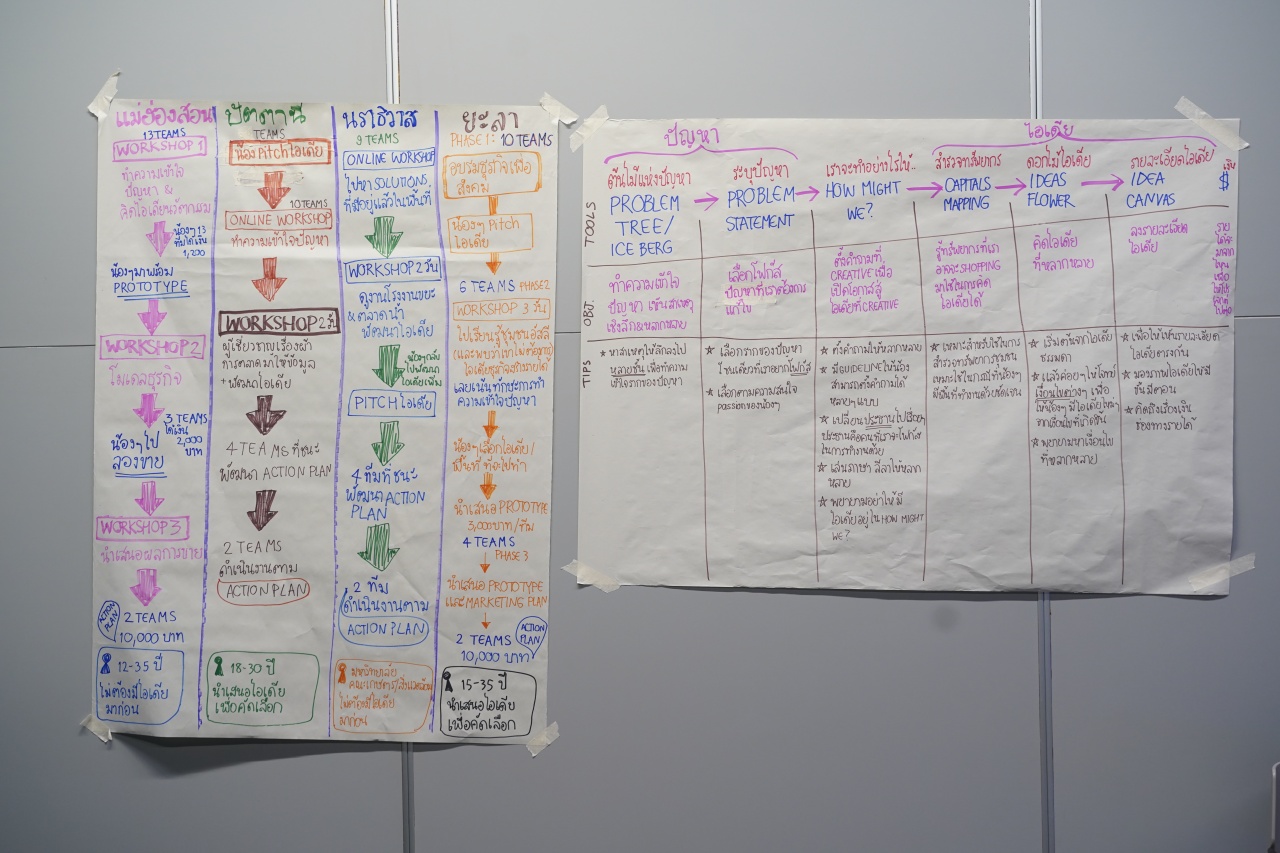 แม่ฮ่องสอน
13 TEAMS
WORKSHOP 1
ทำความเข้าใจ
ปัญหา &
คิดไอเดียนวัตกรรม
น้องๆ 13
ทีมได้เงิน
1,200
น้องๆมาพร้อม
PROTOTYPE
WORKSHOP 2
โมเดลธุรกิจ
3 TEAMS
ได้เงิน
2,000
บาท
น้องๆไป
ลองขาย
WORKSHOP 3
นำเสนอผลการขาย
ACTION
PLAN
2 TEAMS
10,000 บาท
12-35 ปี
ไม่ต้องมีไอเดีย
มาก่อน
ปัตตานี
TEAMS
น้อง Pitch ไอเดีย
10 TEAMS
ONLINE WORKSHOP
ทำความเข้าใจปัญหา
WORKSHOP 2 วัน
ผู้เชี่ยวชาญเรื่องผ้า
การตลาดมาให้ข้อมูล
+ พัฒนาไอเดีย
4 TEAMS ที่ชนะ
พัฒนา ACTION PLAN
2 TEAMS
ดำเนินงานตาม
ACTION PLAN
18-30 ปี
นำเสนอไอเดีย
เพื่อคัดเลือก
นราธิวาส
9 TEAMS
ONLINE WORKSHOP
ไปหา SOLUTIONS
ที่มีอยู่แล้วในพื้นที่
WORKSHOP 2 วัน
ดูงานโรงงานขยะ
& ตลาดน้ำ
พัฒนาไอเดีย
น้องๆกลับ
ไปพัฒนา
ไอเดียเพิ่ม
PITCH ไอเดีย
4 ทีมที่ชนะ
พัฒนา ACTION
PLAN
2 ทีม
ดำเนินงานตาม
ACTION PLAN
มหาวิทยาลัย
ไม่ต้องมีไอเดีย
มาก่อน
ยะลา
PHASE 1: 10 TEAMS
อบรมธุรกิจเพื่อ
สังคม
น้องๆ Pitch
ไอเดีย
6 TEAMS PHASE 2
WORKSHOP 3 วัน
ไปเรียนรู้ชุมชนฮูลู
เลยเน้นทักษะการทำ
ความเข้าใจปัญหา
น้องๆเลือกไอเดีย/
พื้นที่ ที่จะไปทำ
นำเสนอ PROTOTYPE
3,000 บาท/ทีม
4 TEAMS
PHASE 3
นำเสนอ PROTOTYPE
และ MARKETING PLAN
2 TEAMS
10,000 บาท
ACTION
PLAN
15-35 ปี
นำเสนอไอเดีย
เพื่อคัดเลือก
ปัญหา
ไอเดีย
TOOLS
ต้นไม้แห่งปัญหา
PROBLEM
TREE/
ICE BERG
ระบุปัญหา
PROBLEM
STATEMENT
เราจะทำอย่างไรให้..
HOW MIGHT
WE?
สำรวจทรัพยากร
CAPITALS
MAPPING
ดอกไม้ไอเดีย
IDEAS
FLOWER
รายละเอียดไอเดีย
IDEA
CANVAS
เงิน
$
OBJ.
ทำความเข้าใจ
ปัญหา เช่น สาเหตุ
เชิงลึก & หลากหลาย
เลือกโฟกัส
ปัญหาที่เราต้องการ
แก้ไข
ตั้งคำถามที่
CREATIVE เพื่อ
เปิดโอกาสสู่
ไอเดียที่ CREATIVE
รู้ทรัพยากรที่เรา
อาจจะ SHOPPING
มาใช้ในการคิด
ไอเดียได้
คิดไอเดีย
ที่หลากหลาย
ลงรายละเอียด
ไอเดีย
TIPS
★ หาสาเหตุให้ลึกลงไป
หลายชั้น เพื่อทำความ
เข้าใจรากของปัญหา
★ เลือกรากของปัญหา
ไหนเดียวที่เราอยากโฟกัส
★ เลือกตามความสนใจ
passion ของน้องๆ
★ ตั้งคำถามให้หลากหลาย
★ มี GUIDELINE ให้น้อง
สามารถตั้งคำถามได้
หลายๆแบบ
★ เปลี่ยนประธานไปเรื่อยๆ
ประธานคือคนที่เราจะโฟกัส
ในการทำงานด้วย
★ เล่นภาษา ลีลาให้หลาก
หลาย
★ พยายามอย่าให้มี
ไอเดียอยู่ใน HOW MIGHT
WE?
★ เหมาะสำหรับใช้ในการ
สำรวจทรัพยากรชุมชน
เหมาะใช้ในการที่น้องๆ
มีพื้นที่ทำงานด้วยชัดเจน
★ เริ่มต้นจากไอเดีย
ธรรมดา
★ แล้วค่อยๆใส่โจทย์
เงื่อนไขต่างๆ เพื่อ
ให้น้องๆ มีไอเดียใหม่ๆ
จากเงื่อนไขที่เกิดขึ้น
★ พยายามหาเงื่อนไข
ที่หลากหลาย
★ เพื่อให้เห็นรายละเอียด
ไอเดียตรงกัน
★ มองภาพไอเดียให้มี
ขั้นมีตอน
★ คิดถึงเรื่องเงิน
ช่องทางรายได้